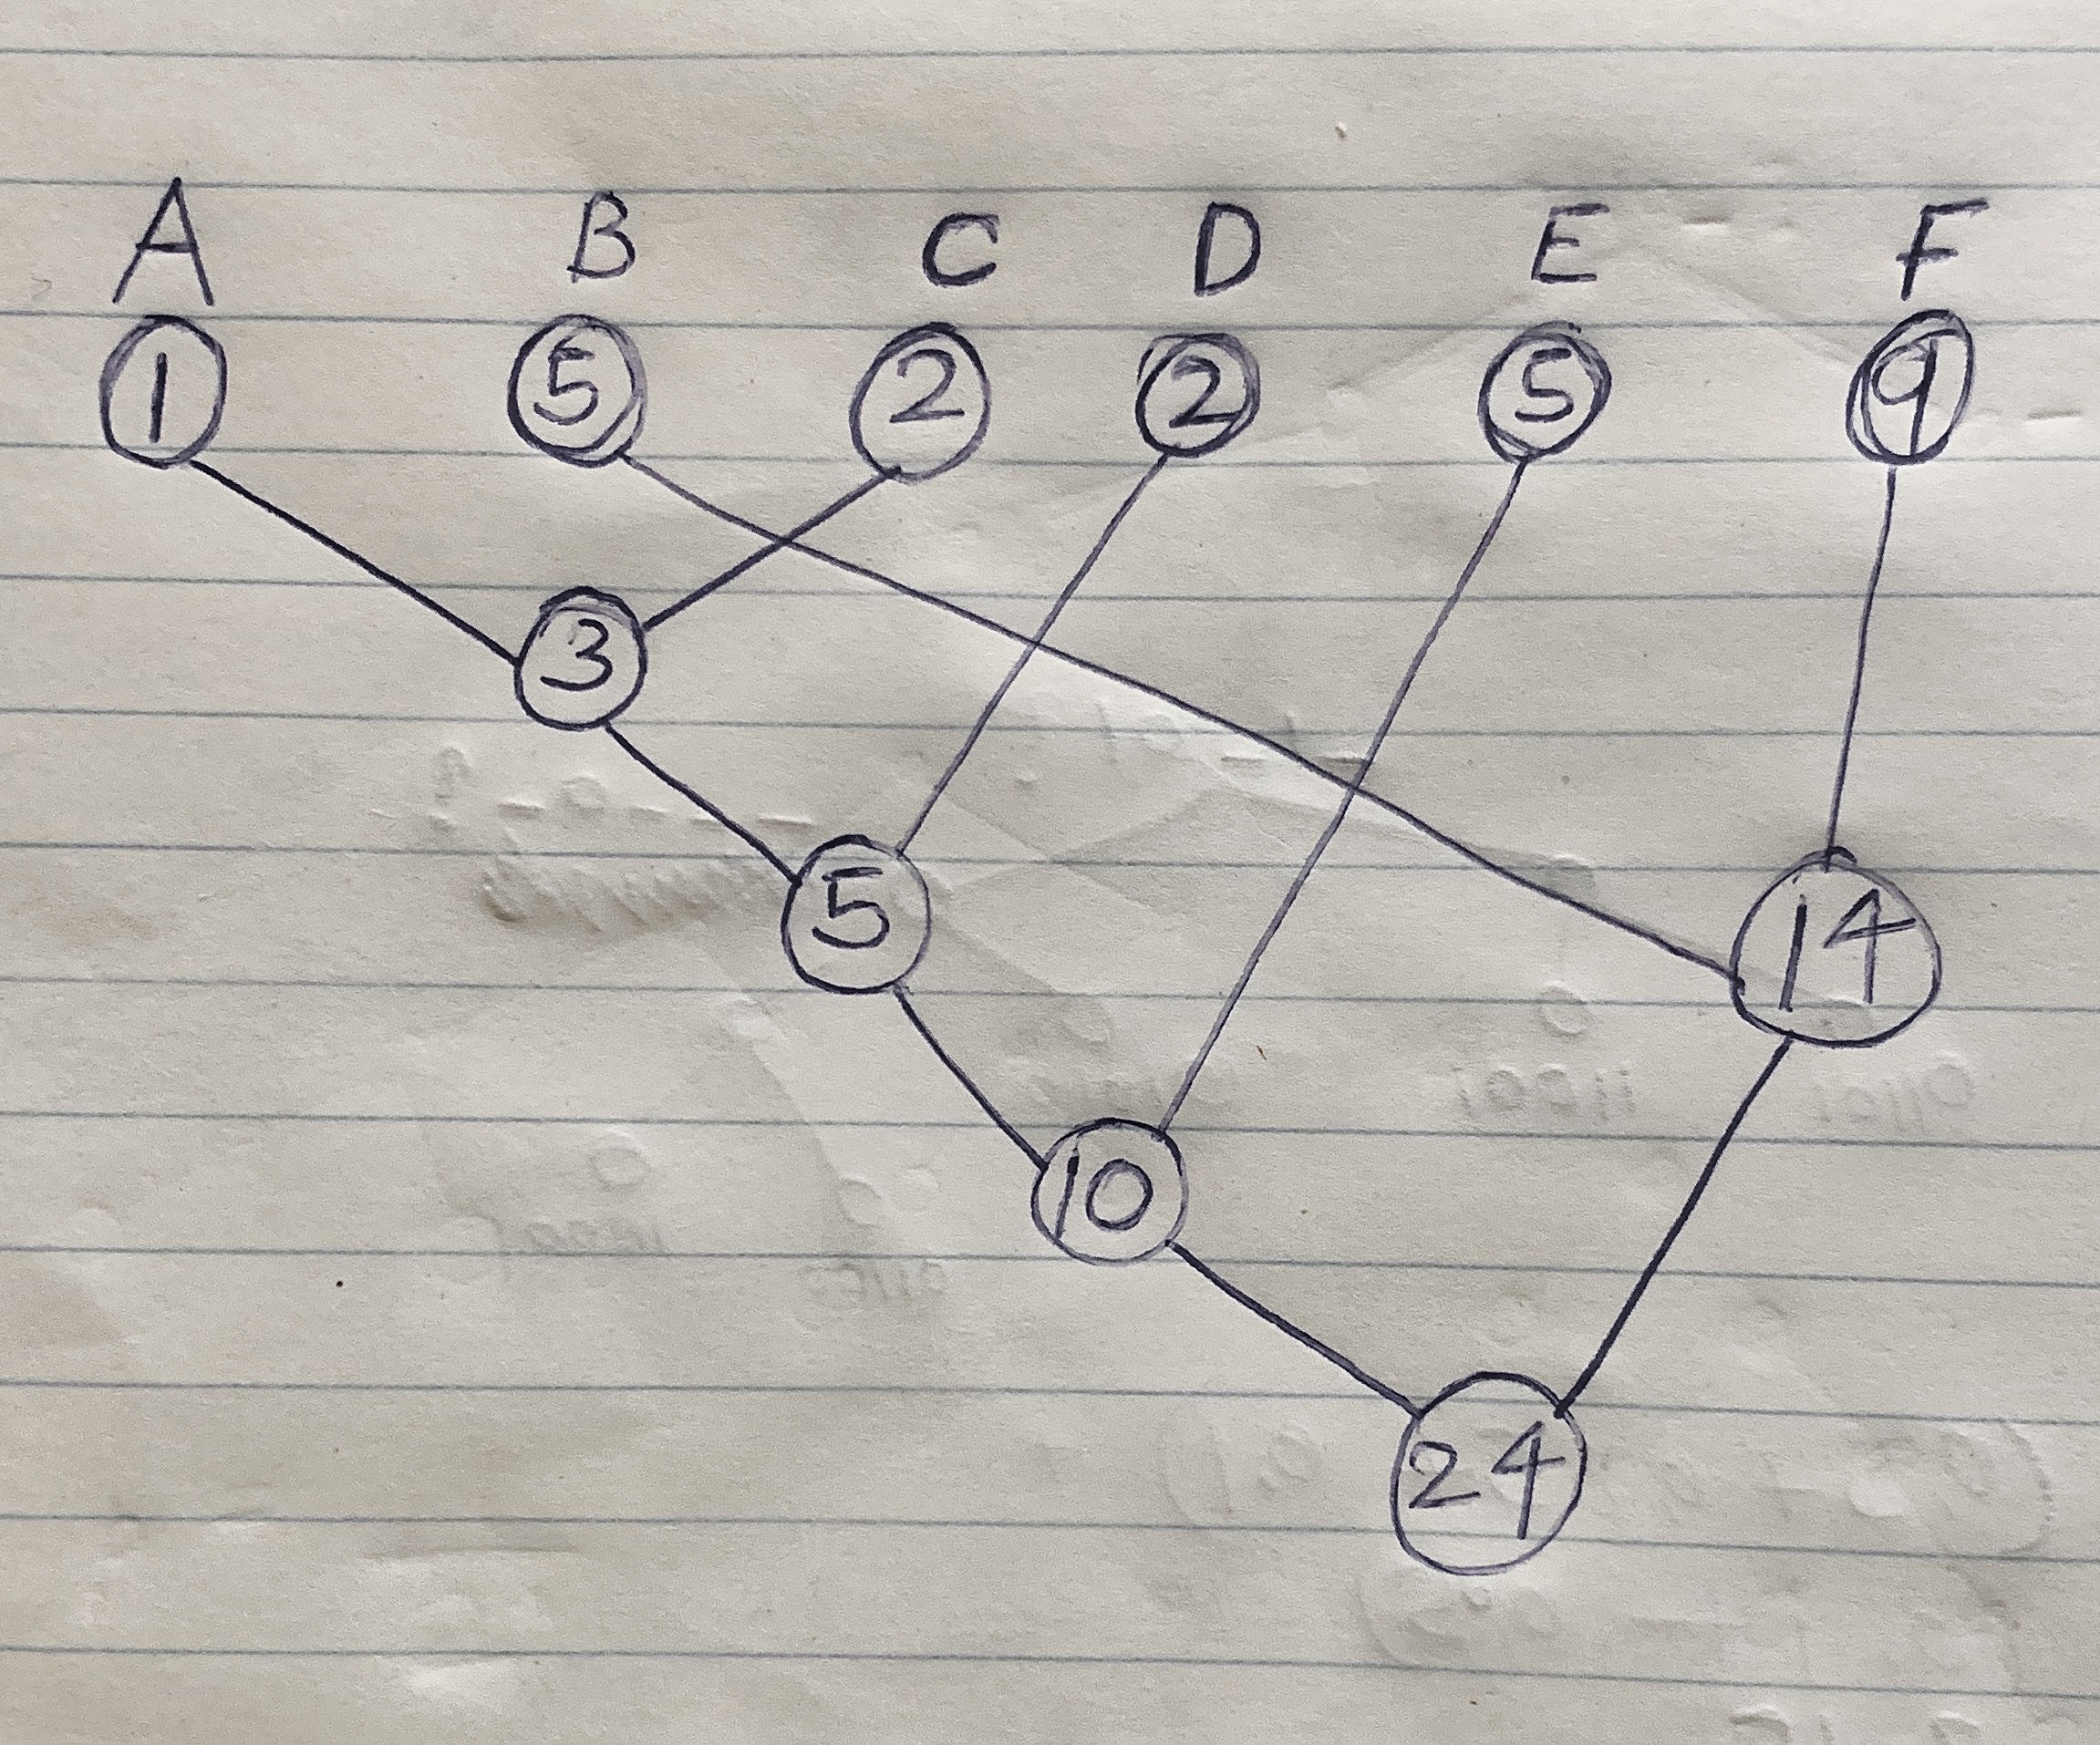 A B C D E F
1 5 2 2 5 9
3
5 14
10
24